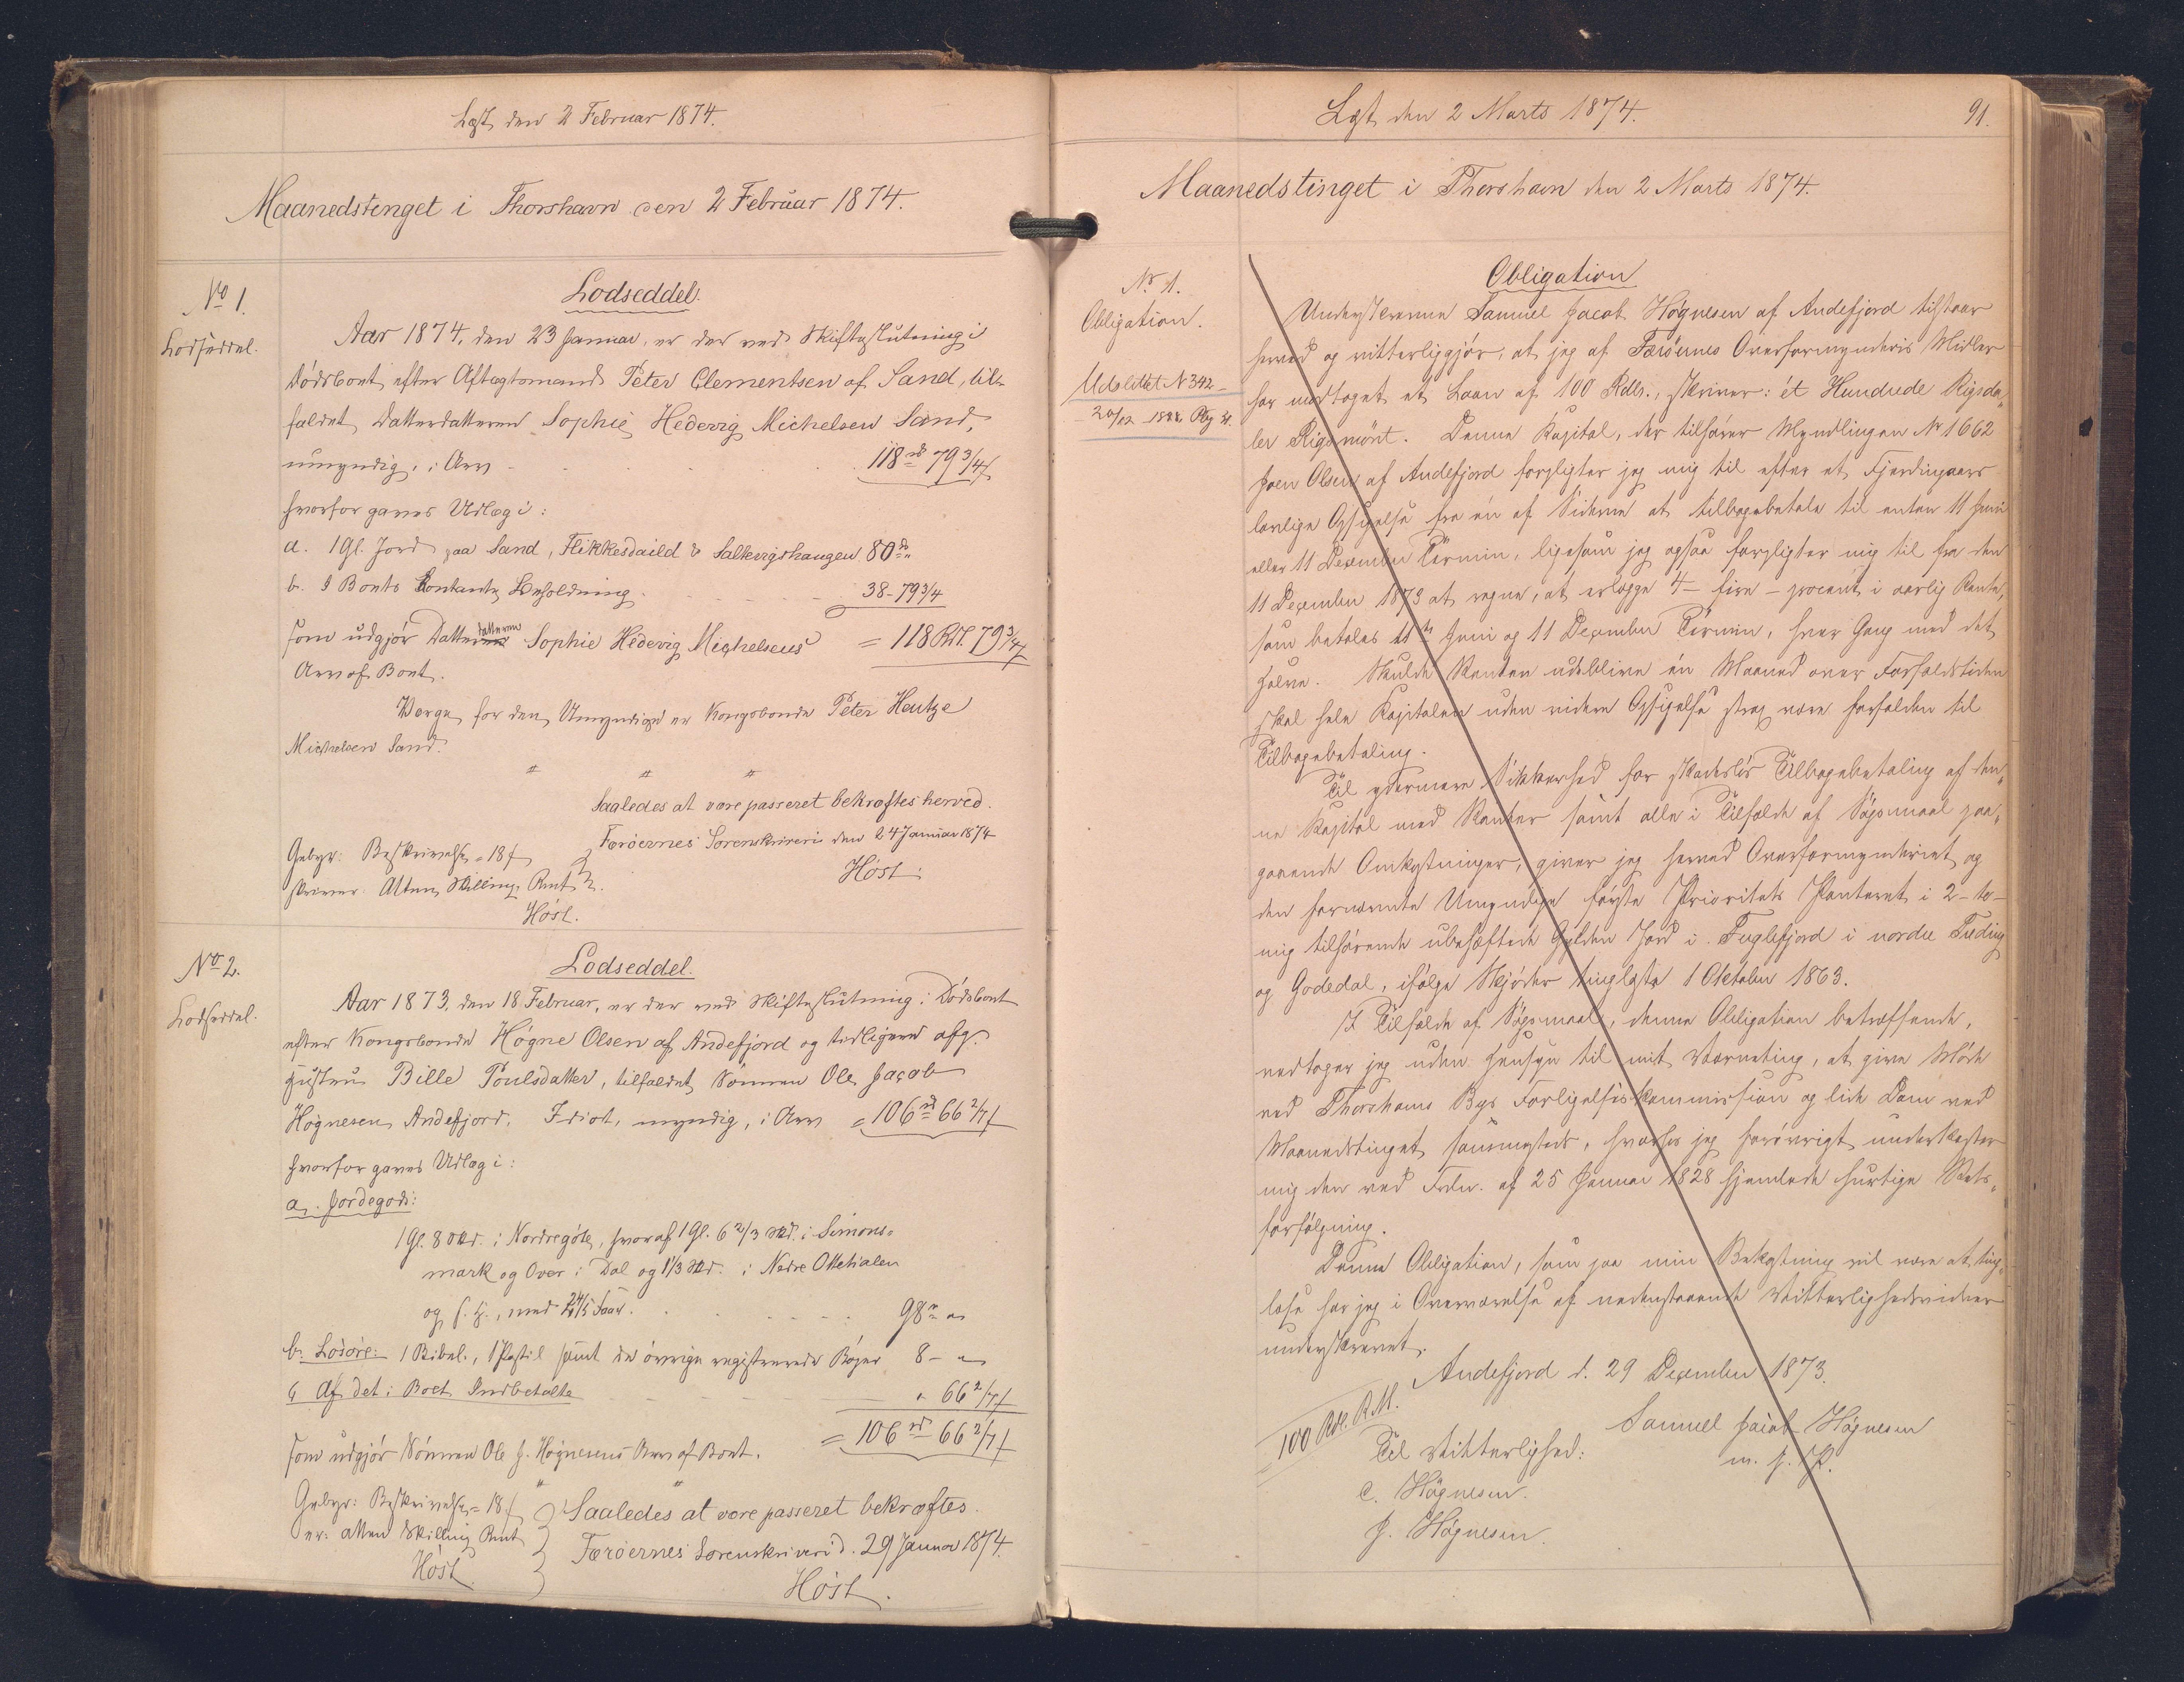 Læst den 2 Februar 1874.
Maanedstinget i Thorshavn den 2 Februar 1874.
No 1.
Lodseddel.
Lodseddel.
Aar 1874, den 23 Januar, er der ved Skifteslutning i
Dødsboet efter Aftægtsmand Peter Clementsen af Sand, til-
faldet Datterdatteren Sophie Hedevig Michelsen Sand,
umyndig, i Arv 118 rd 79 3/4 ß
hvorfor gaves Udlæg i:
a. 1 Gl. Jord paa Sand, Flikkesdaild & Salkevgshaugen 80 rd "
b. I Boets Kontante Beholdning 38 - 79 3/4
som udgjør Datterdatteren Sophie Hedevig Michelsens = 118 Rdl. 79 3/4 ß
Arv af Boet.
Værge for den Umyndige er Kongsbonde Peter Hentze
Michelsen Sand.
" " "
Saaledes at være passeret bekræftes herved.
Færøernes Sorenskriveri den 24 Januar 1874
Høst.
Gebyr: Beskrivelse = 18 ß
skriver Atten Skilling Rmt.
Høst.
No 2.
Lodseddel.
Lodseddel.
Aar 1873, den 18 Februar, er der ved Skifteslutning i Dødsboet
efter Kongsbonde Høgne Olsen af Andefjord og tidligere afg.
Hustru Bille Poulsdatter, tilfaldet Sønnen Ole Jacob
Høgnesen Andefjord, Idiot, myndig, i Arv = 106 rd 66 2/7 ß
hvorfor gaves Udlæg i:
a. Jordegods:
1 Gl. 8 Skd. i Nordregøte, hvoraf 1 Gl. 6 2/3 Skd. i Simons-
mark og Over i Dal og 1 1/3 Skd. i Nedre
og s. h., med 24/5 Faar. 98 rd "
b. Løsøre: 1 Bibel, 1 Postil samt de øvrige registrerede Bøger 8 - "
c Af det i Boet Indbetalte " 66 2/7 ß
som udgjør Sønnen Ole J. Høgnesens Arv af Boet. = 106 rd 66 2/7 ß
Gebyr: Beskrivelse = 18 ß
er: atten Skilling Rmt
Høst
Saaledes at være passeret bekræftes.
Færøernes Sorenskriveri d. 29 Januar 1874.
Høst.
Læst den 2 Marts 1874.
91.
Maanedstinget i Thorshavn den 2 Marts 1874.
No 1.
Obligation.
Udslettet N 342
20/12 1888
Obligation
Undertegnede Samuel Jacob Høgnesen af Andefjord tilstaar
herved og vitterliggjør, at jeg af Færøernes Overformynderis Midler
har modtaget et Laan af 100 Rdlr., skriver: ét Hundrede Rigsda-
ler Rigsmønt. Denne Kapital, der tilhører Myndlingen No 1662
Joen Olsen af Andefjord forpligter jeg mig til efter et Fjerdingaars
lovlige Opsigelse fra én af Siderne at tilbagebetale til enten 11 Juni
eller 11 December Termin, ligesom jeg ogsaa forpligter mig til fra den
11 December 1873 at regne, at erlægge 4 - fire - procent i aarlig Rente,
som betales 11te Juni og 11 December Termin, hver Gang med det
halve. Skulde Renten udeblive én Maaned over Forfaldstiden
skal hele Kapitalen uden videre Opsigelse strax være forfalden til
Tilbagebetaling.
Til ydermere Sikkerhed for skadesløs Tilbagebetaling af den-
ne Kapital med Renter samt alle i Tilfælde af Søgsmaal paa-
gaaende Omkostninger, giver jeg herved Overformynderiet og
den fornævnte Umyndige første Prioritets Panteret i 2 - to -
mig tilhørende ubehæftede Gylden Jord i Fuglefjord i nordre Treding
og Godedal, ifølge Skjøder tinglæste 1 Oktober 1863.
I Tilfælde af Søgsmaal, denne Obligation betræffende,
vedtager jeg uden Hensyn til mit Værneting, at give Møde
ved Thorshavns Byes Forligelseskommission og lide Dom ved
Maanedstinget sammesteds, hvorhos jeg forøvrigt underkaster
mig den ved Frdn. af 25 Januar 1828 hjemlede hurtige Rets-
forfølgning.
Denne Obligation, som paa min Bekostning vil være at ting-
læse har jeg i Overværelse af nedenstaaende Vitterlighedsvidner
underskrevet.
Andefjord d. 29 December 1873.
100 Rdl. R.M.
Samuel Jacob Høgnesen
m. f. P.
Til Vitterlighed:
C. Høgnesen.
J. Høgnesen.